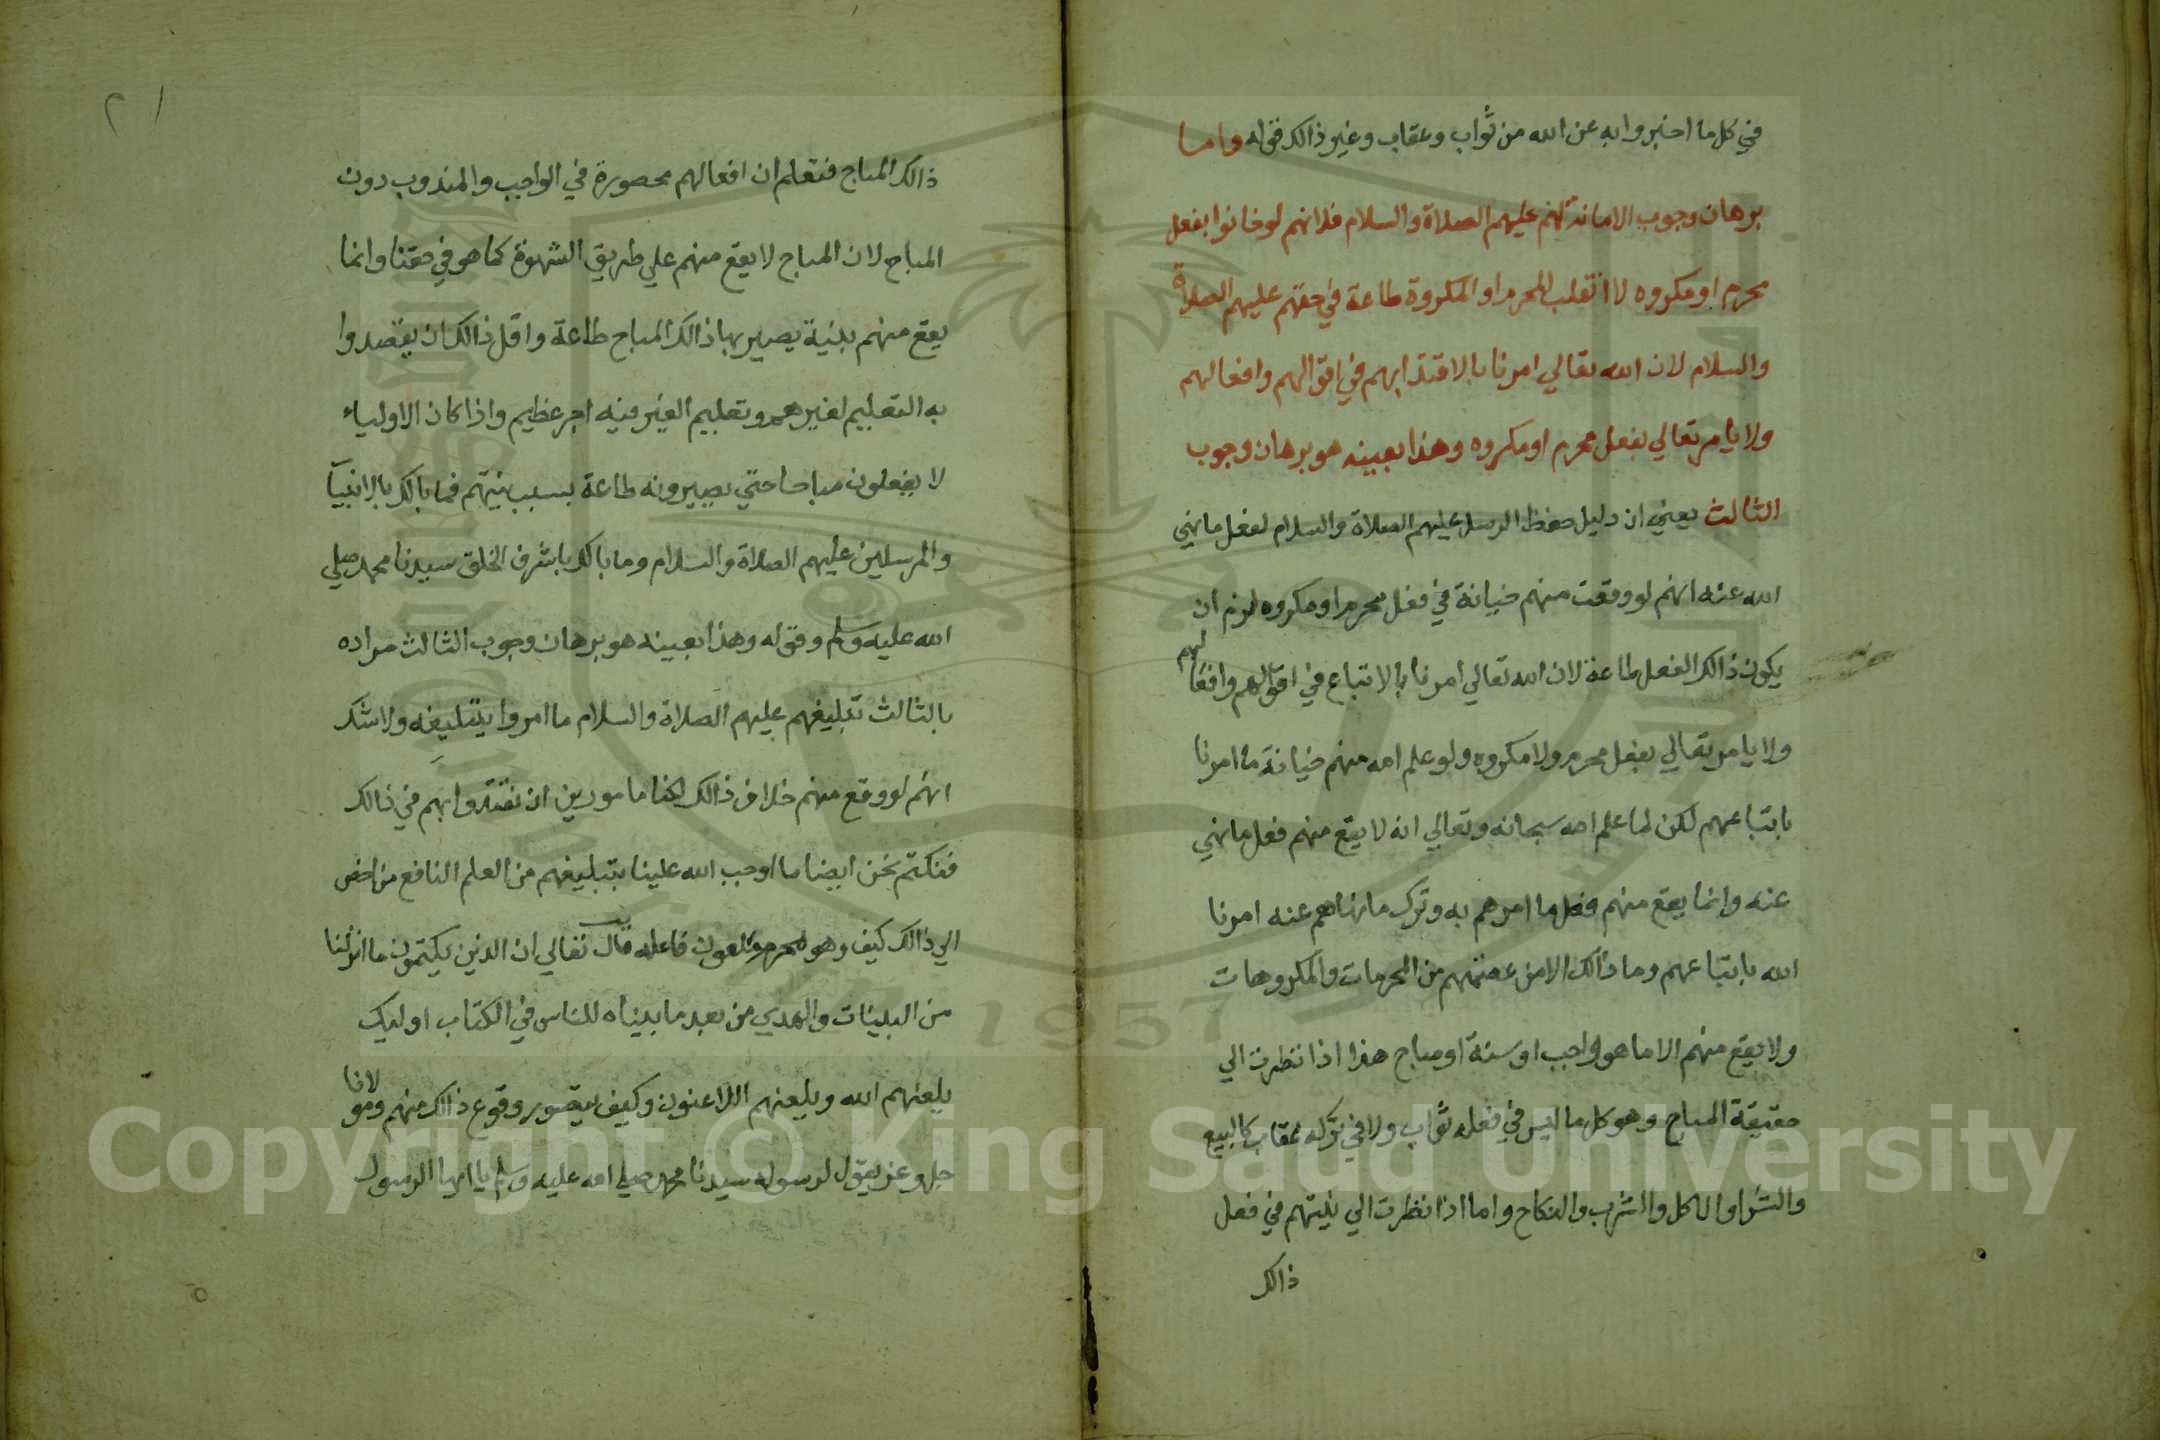 في كل ما اخبروا به عن الله من ثواب وعقاب وغير ذالك قوله واما
برهان وجوب الامانة لهم عليهم الصلاة والسلام فلانهم لو خانوا بفعل
محرم او مكروه لاانقلب المحرم او المكروة طاعة في حقهم عليهم الصلاة
والسلام لان الله تعالي امرنا بالاقتدابهم في اقوالهم وافعالهم
ولا يامر تعالي بفعل محرم او مكروه وهذا بعينه هو برهان وجوب
الثالث يعني ان دليل حفظ الرسل عليهم الصلاة والسلام لفعل ما نهي
الله عنه انهم لو وقعت منهم خيانة في فعل محرم او مكروه لزم ان
يكون ذالك الفعل طاعة لان الله تعالي امرنا بالاتباع في اقوالهم وافعالهم
ولا يامر تعالي بفعل محرم ولا مكروه ولو علم الله منهم خيانة ما امرنا
باتباعهم لكن لما علم الله سبحانه وتعالي انه لا يقع منهم فعل ما نهي
عنه وانما يقع منهم فعل ما امرهم به وترك ما نهاهم عنه امرنا
الله باتباعهم وما ذالك الا من عصمتهم من المحرمات والمكروهات
ولا يقع منهم الا ما هو واجب او سنة او مباح هذا اذا نظرت الي
حقيقة المباح وهو كل ما ليس في فعله ثواب ولا في تركه عقاب كالبيع
والشرا والاكل والشرب والنكاح واما اذا نظرت الي نيتهم في فعل
ذالك
٢١
ذالك المباح فتعلم ان افعالهم محصورة في الواجب والمندوب دون
المباح لان المباح لا يقع منهم علي طريق الشهوة كما هو في حقنا وانما
يقع منهم بنية يصير بها ذالك المباح طاعة واقل ذالك ان يقصدوا
به التعليم لغيرهم وتعليم الغير فيه اجر عظيم واذا كان الاولياء
لا يفعلون مباحا حتي يصيرونه طاعة بسبب نيتهم فما بالك بالانبيآ
والمرسلين عليهم الصلاة والسلام وما بالك باشرف الخلق سيدنا محمد صلي
الله عليه وسلم وقوله وهذا بعينه هو برهان وجوب الثالث مراده
بالثالث تبليغهم عليهم الصلاة والسلام ما امروا بتبليغه ولا شك
انهم لو وقع منهم خلاف ذالك لكنا مامورين ان نقتدوا بهم في ذالك
فنكتم نحن ايضا ما اوجب الله علينا بتبليغهم من العلم النافع من اضر
الي ذالك كيف وهو محرم ملعون فاعله قال تعالي ان الذين يكتمون ما انزلنا
من البينات والهدي من بعد ما بيناه للناس في الكتاب اوليك
يلعنهم الله ويلعنهم اللاعنون وكيف يتصور وقوع ذالك منهم ومولانا
جل وعز يقول لرسوله سيدنا محمد صلي الله عليه وسلم يا ايها الرسول
1957
Copyright © King Saud University